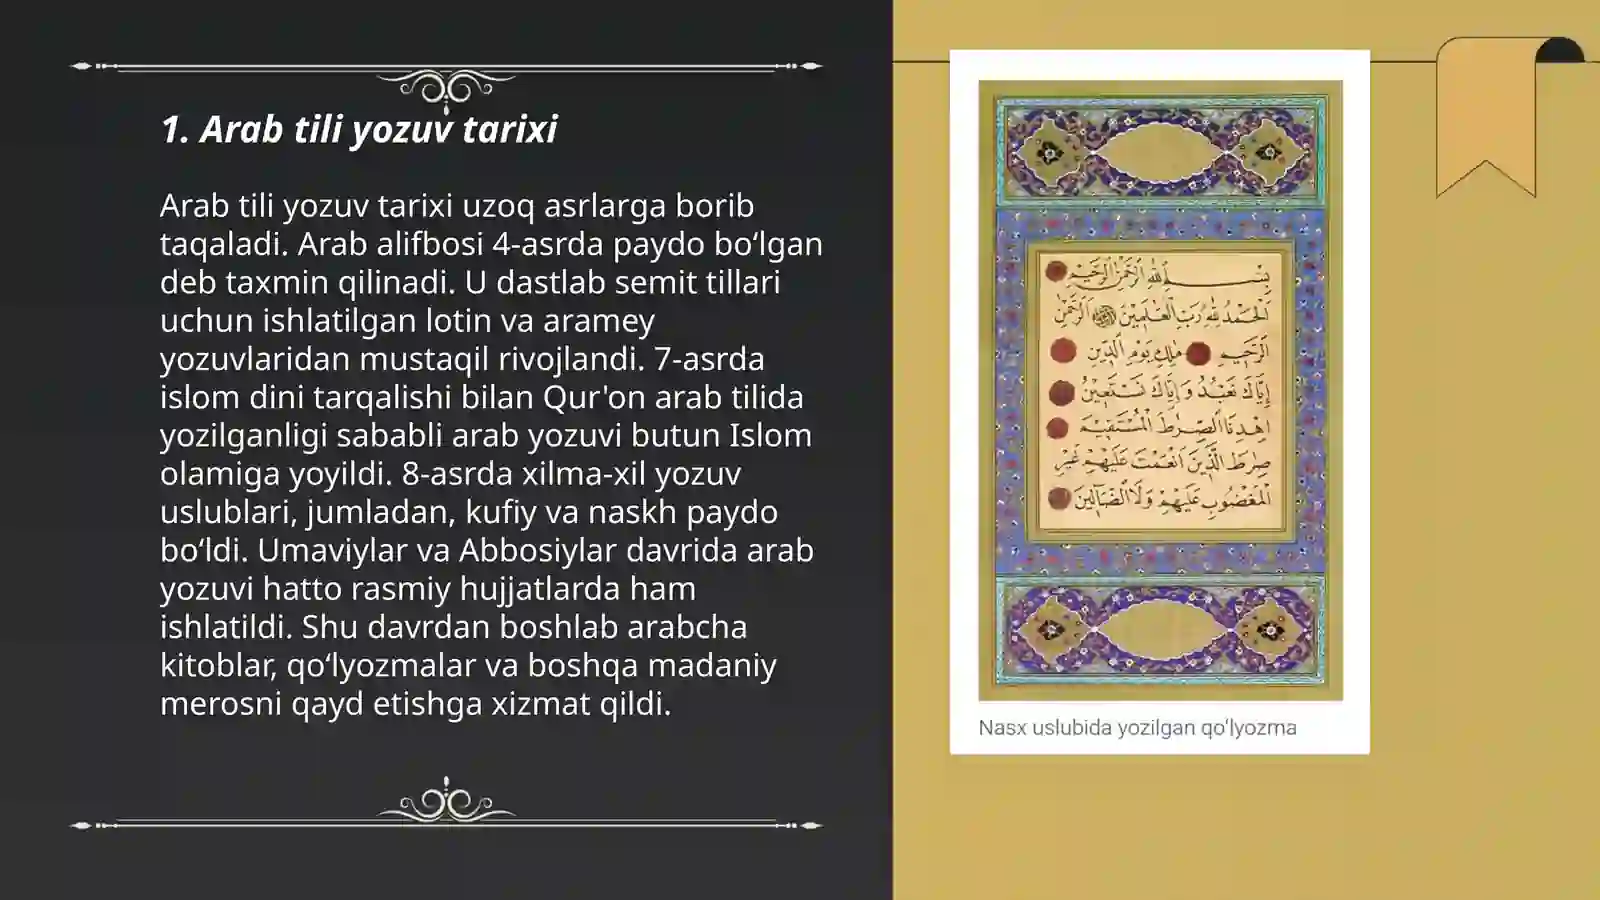 1. Arab tili yozuv tarixi
Arab tili yozuv tarixi uzoq asrlarga borib
taqaladi. Arab alifbosi 4-asrda paydo bo‘lgan
deb taxmin qilinadi. U dastlab semit tillari
uchun ishlatilgan lotin va aramey
yozuvlaridan mustaqil rivojlandi. 7-asrda
islom dini tarqalishi bilan Qur'on arab tilida
yozilganligi sababli arab yozuvi butun Islom
olamiga yoyildi. 8-asrda xilma-xil yozuv
uslublari, jumladan, kufiy va naskh paydo
bo‘ldi. Umaviylar va Abbosiylar davrida arab
yozuvi hatto rasmiy hujjatlarda ham
ishlatildi. Shu davrdan boshlab arabcha
kitoblar, qo‘lyozmalar va boshqa madaniy
merosni qayd etishga xizmat qildi.
بِسْمِ اللهِ الرَّحْمٰنِ الرَّحِيْمِ
اَلْحَمْدُ لِلّٰهِ رَبِّ الْعٰلَمِيْنَ اَلرَّحْمٰنِ
الرَّحِيْمِ مٰلِكِ يَوْمِ الدِّيْنِ
اِيَّاكَ نَعْبُدُ وَ اِيَّاكَ نَسْتَعِيْنُ
اِهْدِنَا الصِّرٰطَ الْمُسْتَقِيْمَ
صِرٰطَ الَّذِيْنَ اَنْعَمْتَ عَلَيْهِمْ غَيْرِ
الْمَغْضُوْبِ عَلَيْهِمْ وَلَا الضَّآلِّيْنَ
Nasx uslubida yozilgan qo‘lyozma